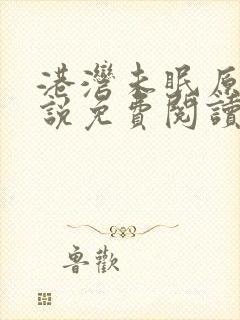 港灣未眠原
說免費閱讀
魯歡